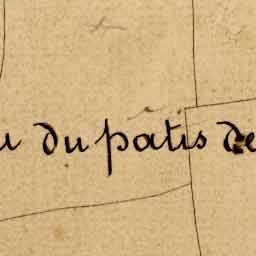 u du pâtis de